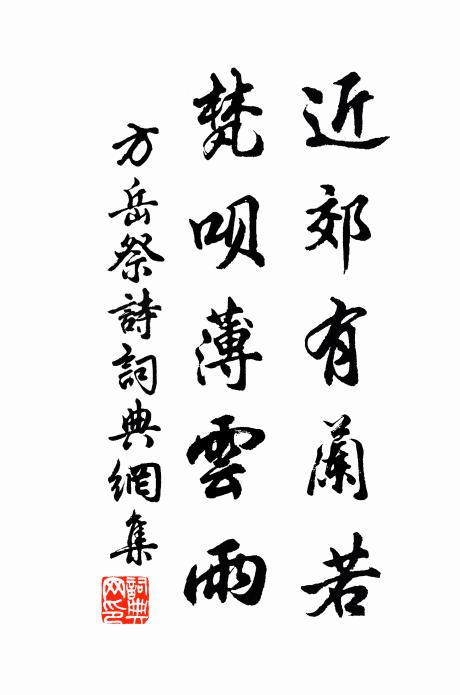 近郊有蘭若
梵唄薄雲雨
方岳祭詩詞典網集
詞典網印